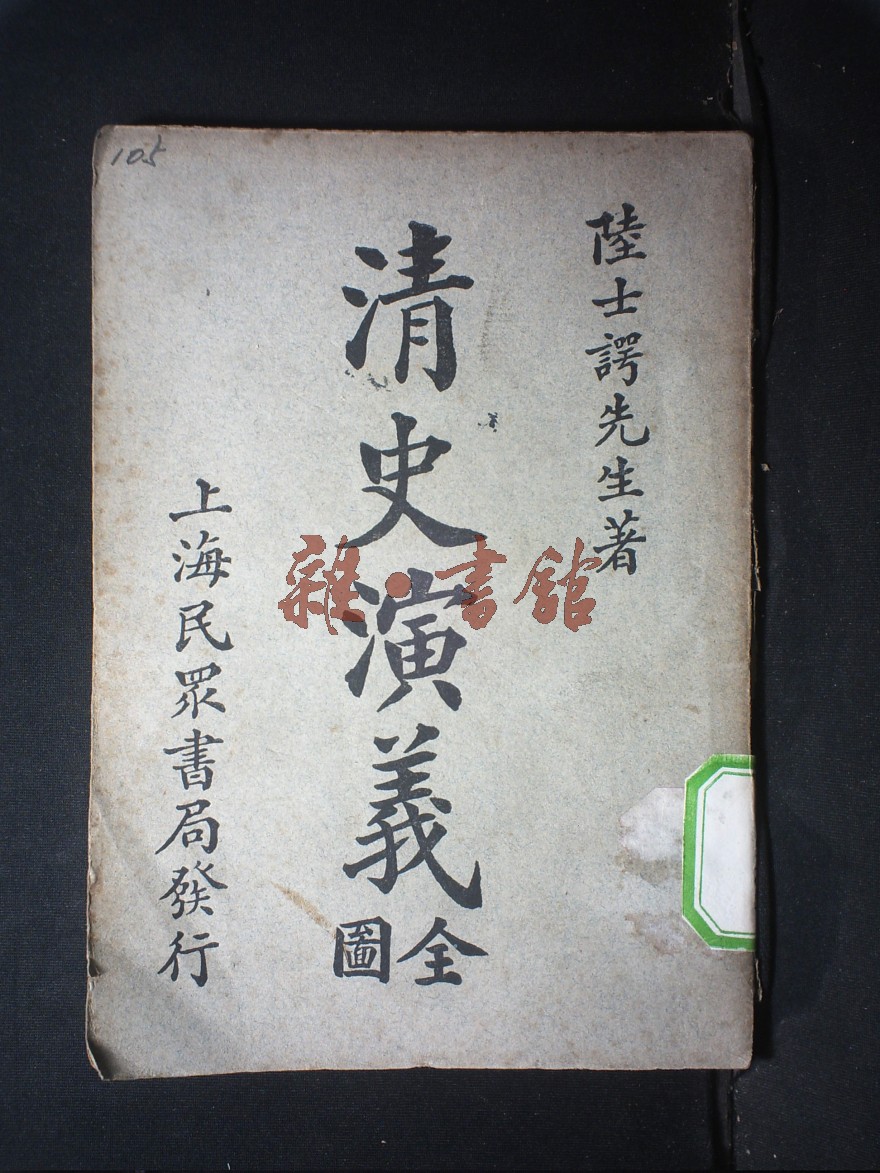 陸士諤先生著
清史演義
全圖
上海民眾書局發行
雜·書館
105